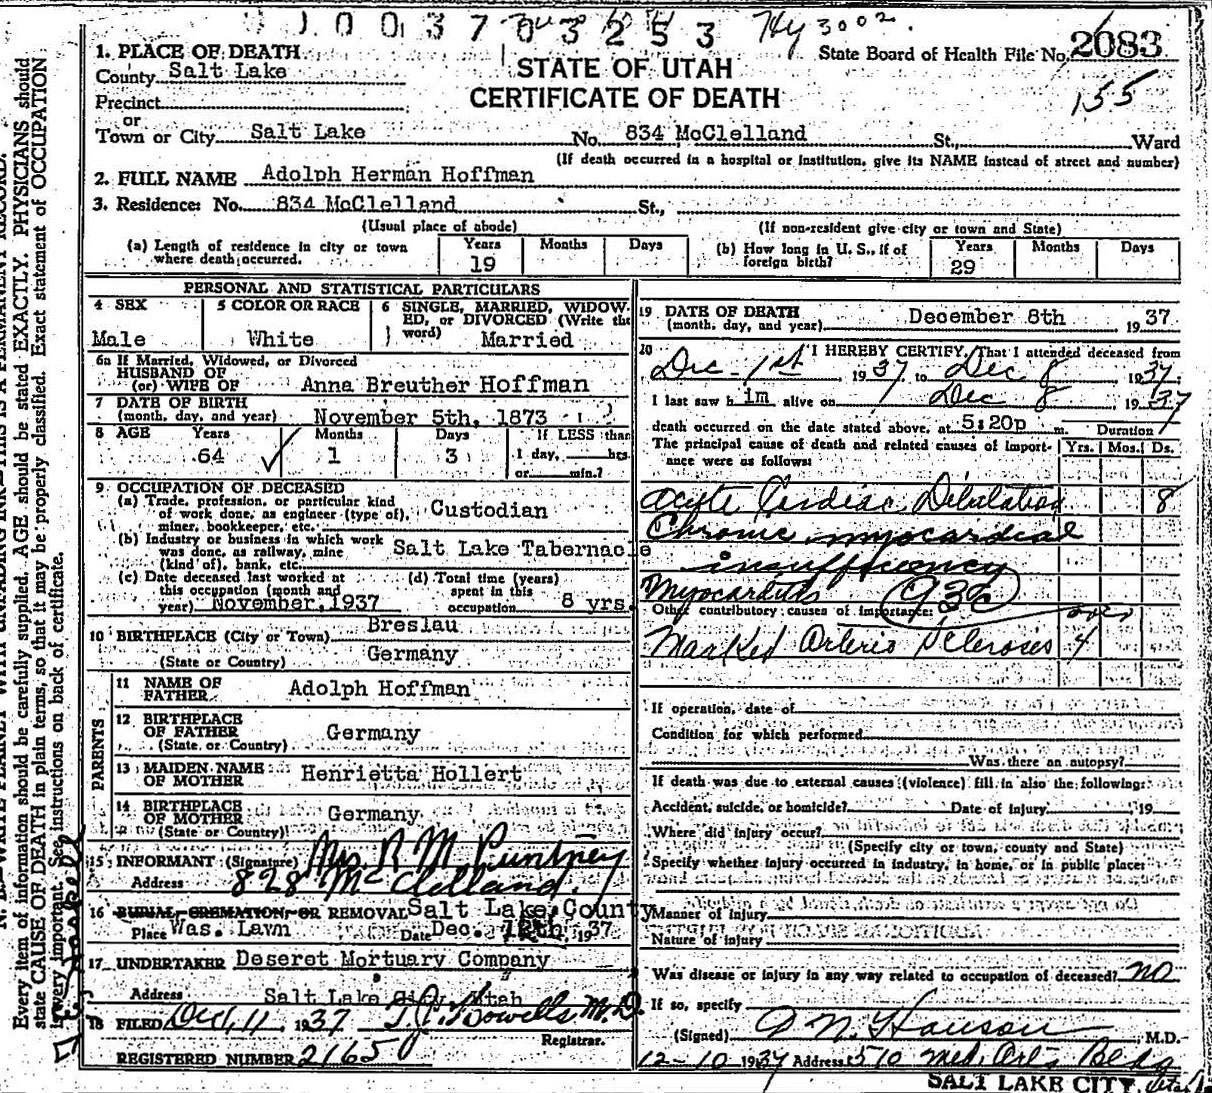 10037 03253 Hy 3002.
1. PLACE OF DEATH
State Board of Health File No. 2083
County Salt Lake
STATE OF UTAH
155
Precinct
CERTIFICATE OF DEATH
or
Town or City Salt Lake No. 834 McClelland St., Ward
(If death occurred in a hospital or institution, give its NAME instead of street and number)
2. FULL NAME Adolph Herman Hoffman
3. Residence: No. 834 McClelland St.,
(Usual place of abode) (If non-resident give city or town and State)
(a) Length of residence in city or town where death occurred. Years 19 Months Days
(b) How long in U. S., if of foreign birth? Years 29 Months Days
PERSONAL AND STATISTICAL PARTICULARS
4 SEX Male
5 COLOR OR RACE White
6 SINGLE, MARRIED, WIDOWED, or DIVORCED (Write the word) Married
6a If Married, Widowed, or Divorced
HUSBAND OF
(or) WIFE OF Anna Breuther Hoffman
7 DATE OF BIRTH
(month, day, and year) November 5th, 1873
8 AGE Years 64 Months 1 Days 3 If LESS than 1 day, hrs. or min.?
9 OCCUPATION OF DECEASED
(a) Trade, profession, or particular kind of work done, as engineer (type of), miner, bookkeeper, etc. Custodian
(b) Industry or business in which work was done, as railway, mine (kind of), bank, etc. Salt Lake Tabernacle
(c) Date deceased last worked at this occupation (month and year) November, 1937
(d) Total time (years) spent in this occupation 8 yrs.
10 BIRTHPLACE (City or Town) Breslau
(State or Country) Germany
PARENTS
11 NAME OF FATHER Adolph Hoffman
12 BIRTHPLACE OF FATHER (State or Country) Germany
13 MAIDEN NAME OF MOTHER Henrietta Hollert
14 BIRTHPLACE OF MOTHER (State or Country) Germany
15 INFORMANT (Signature) Mrs. R M
Address 828 McClelland.
16 BURIAL, CREMATION, OR REMOVAL Salt Lake County
Place Was. Lawn Date Dec. 12th, 1937
17 UNDERTAKER Deseret Mortuary Company
Address Salt Lake City, Utah
18 FILED Dec. 11, 1937 M.D.
Registrar.
REGISTERED NUMBER 2165
19 DATE OF DEATH
(month, day, and year) December 8th 1937
20 I HEREBY CERTIFY, That I attended deceased from
Dec - 1st 1937, to Dec 8 1937.
I last saw him alive on Dec 8 1937
death occurred on the date stated above, at 5:20p m. Duration
The principal cause of death and related causes of importance were as follows: Yrs. Mos. Ds.
Acute Cardiac Dilatation 8
Chronic myocardial
insufficiency
Myocarditis 93c
Other contributory causes of importance:
Marked Arterio Sclerosis 4
If operation, date of
Condition for which performed
Was there an autopsy?
If death was due to external causes (violence) fill in also the following:
Accident, suicide, or homicide? Date of injury 19
Where did injury occur?
(Specify city or town, county and State)
Specify whether injury occurred in industry, in home, or in public place:
Manner of injury
Nature of injury
Was disease or injury in any way related to occupation of deceased? no
If so, specify
(Signed) Hanson M.D.
12-10 1937 Address 510 Med. Arts Bldg
SALT LAKE CITY, Utah
Every item of information should be carefully supplied. AGE should be stated EXACTLY. PHYSICIANS should
state CAUSE OF DEATH in plain terms, so that it may be properly classified. Exact statement of OCCUPATION
is very important. See instructions on back of certificate.